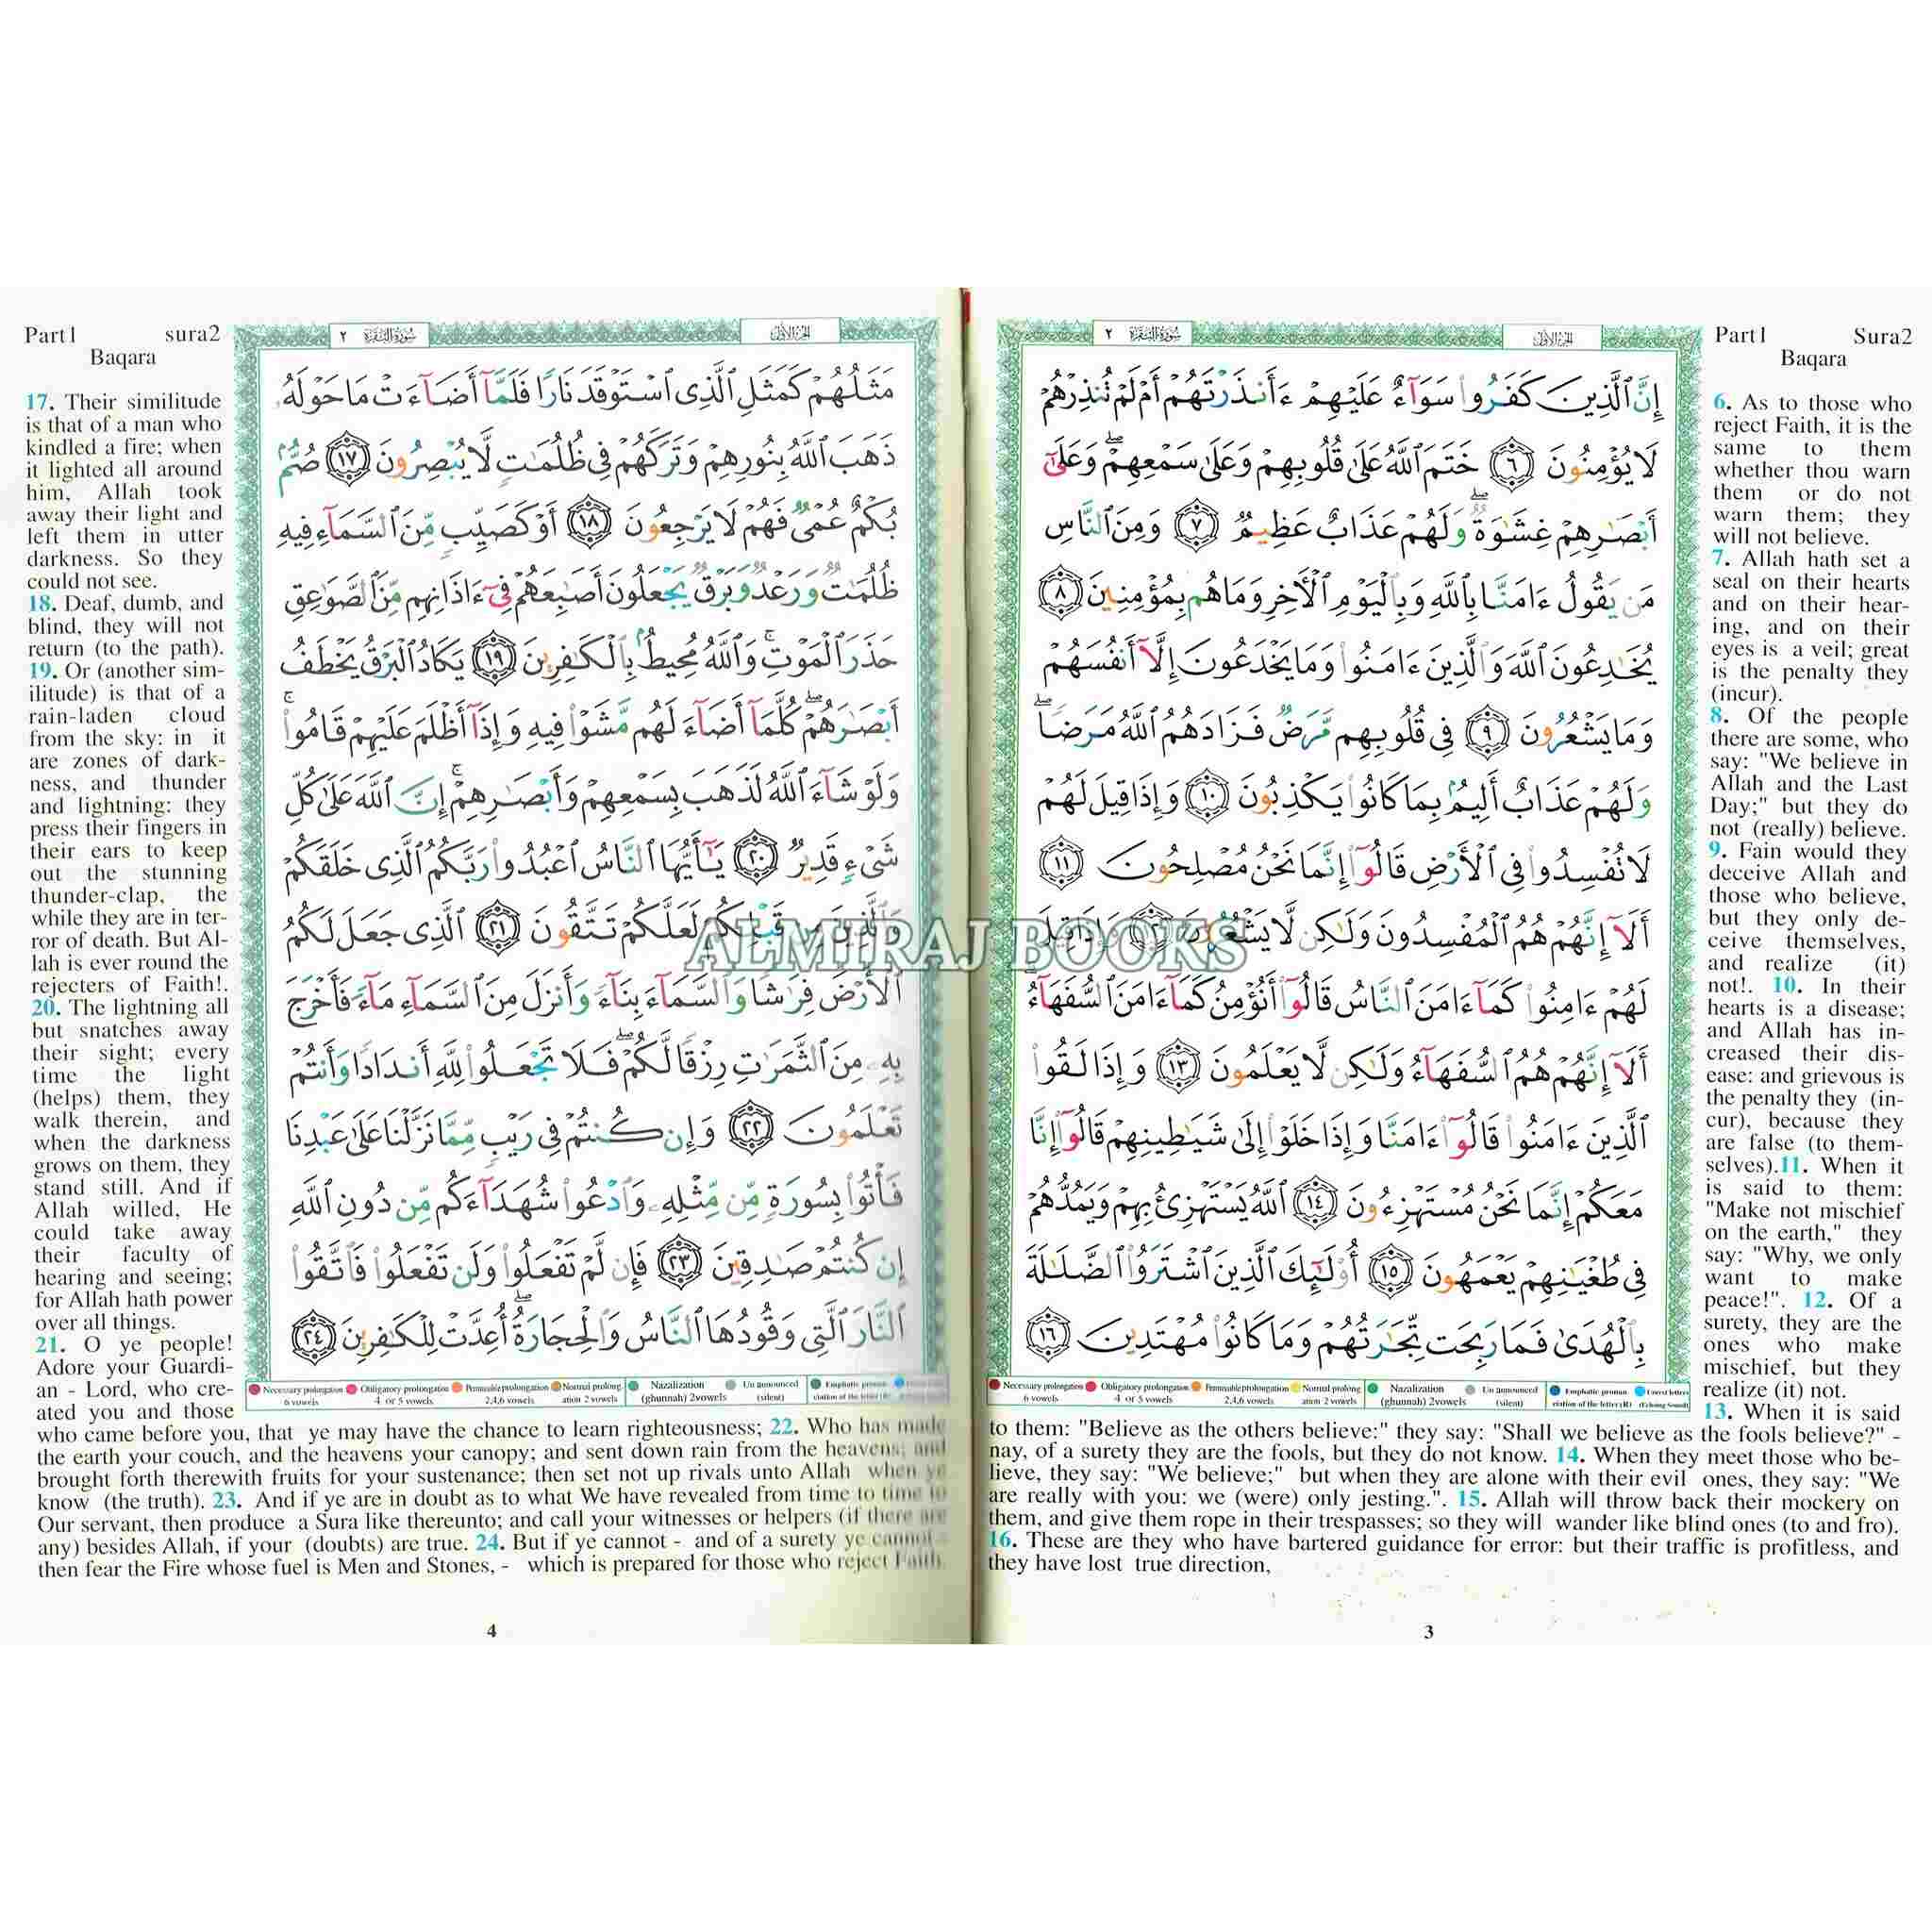 Part1 Sura2
Baqara
سُورَةُ البَقَرَة ٢
الجزء الأول
إِنَّ ٱلَّذِينَ كَفَرُوا۟ سَوَآءٌ عَلَيْهِمْ ءَأَنذَرْتَهُمْ أَمْ لَمْ تُنذِرْهُمْ
لَا يُؤْمِنُونَ ٦ خَتَمَ ٱللَّهُ عَلَىٰ قُلُوبِهِمْ وَعَلَىٰ سَمْعِهِمْ ۖ وَعَلَىٰٓ
أَبْصَٰرِهِمْ غِشَٰوَةٌ ۖ وَلَهُمْ عَذَابٌ عَظِيمٌ ٧ وَمِنَ ٱلنَّاسِ
مَن يَقُولُ ءَامَنَّا بِٱللَّهِ وَبِٱلْيَوْمِ ٱلْأَخِرِ وَمَا هُم بِمُؤْمِنِينَ ٨
يُخَٰدِعُونَ ٱللَّهَ وَٱلَّذِينَ ءَامَنُوا۟ وَمَا يَخْدَعُونَ إِلَّآ أَنفُسَهُمْ
وَمَا يَشْعُرُونَ ٩ فِى قُلُوبِهِم مَّرَضٌ فَزَادَهُمُ ٱللَّهُ مَرَضًا ۖ
وَلَهُمْ عَذَابٌ أَلِيمٌۢ بِمَا كَانُوا۟ يَكْذِبُونَ ١٠ وَإِذَا قِيلَ لَهُمْ
لَا تُفْسِدُوا۟ فِى ٱلْأَرْضِ قَالُوٓا۟ إِنَّمَا نَحْنُ مُصْلِحُونَ ١١
أَلَآ إِنَّهُمْ هُمُ ٱلْمُفْسِدُونَ وَلَٰكِن لَّا يَشْعُرُونَ ١٢ وَإِذَا قِيلَ
لَهُمْ ءَامِنُوا۟ كَمَآ ءَامَنَ ٱلنَّاسُ قَالُوٓا۟ أَنُؤْمِنُ كَمَآ ءَامَنَ ٱلسُّفَهَآءُ ۗ
أَلَآ إِنَّهُمْ هُمُ ٱلسُّفَهَآءُ وَلَٰكِن لَّا يَعْلَمُونَ ١٣ وَإِذَا لَقُوا۟
ٱلَّذِينَ ءَامَنُوا۟ قَالُوٓا۟ ءَامَنَّا وَإِذَا خَلَوْا۟ إِلَىٰ شَيَٰطِينِهِمْ قَالُوٓا۟ إِنَّا
مَعَكُمْ إِنَّمَا نَحْنُ مُسْتَهْزِءُونَ ١٤ ٱللَّهُ يَسْتَهْزِئُ بِهِمْ وَيَمُدُّهُمْ
فِى طُغْيَٰنِهِمْ يَعْمَهُونَ ١٥ أُو۟لَٰٓئِكَ ٱلَّذِينَ ٱشْتَرَوُا۟ ٱلضَّلَٰلَةَ
بِٱلْهُدَىٰ فَمَا رَبِحَت تِّجَٰرَتُهُمْ وَمَا كَانُوا۟ مُهْتَدِينَ ١٦
Necessary prolongation 6 vowels
Obligatory prolongation 4 or 5 vowels
Permissible prolongation 2,4,6 vowels
Normal prolongation 2 vowels
Nazalization (ghunnah) 2vowels
Un announced (silent)
Emphatic pronunciation of the letter (R)
6. As to those who
reject Faith, it is the
same to them
whether thou warn
them or do not
warn them; they
will not believe.
7. Allah hath set a
seal on their hearts
and on their hear-
ing, and on their
eyes is a veil; great
is the penalty they
(incur).
8. Of the people
there are some, who
say: "We believe in
Allah and the Last
Day;" but they do
not (really) believe.
9. Fain would they
deceive Allah and
those who believe,
but they only de-
ceive themselves,
and realize (it)
not!. 10. In their
hearts is a disease;
and Allah has in-
creased their dis-
ease: and grievous is
the penalty they (in-
cur), because they
are false (to them-
selves).11. When it
is said to them:
"Make not mischief
on the earth," they
say: "Why, we only
want to make
peace!". 12. Of a
surety, they are the
ones who make
mischief, but they
realize (it) not.
13. When it is said
to them: "Believe as the others believe:" they say: "Shall we believe as the fools believe?" -
nay, of a surety they are the fools, but they do not know. 14. When they meet those who be-
lieve, they say: "We believe;" but when they are alone with their evil ones, they say: "We
are really with you: we (were) only jesting.". 15. Allah will throw back their mockery on
them, and give them rope in their trespasses; so they will wander like blind ones (to and fro).
16. These are they who have bartered guidance for error: but their traffic is profitless, and
they have lost true direction,
3
Part1 sura2
Baqara
سُورَةُ البَقَرَة ٢
الجزء الأول
مَثَلُهُمْ كَمَثَلِ ٱلَّذِى ٱسْتَوْقَدَ نَارًا فَلَمَّآ أَضَآءَتْ مَا حَوْلَهُۥ
ذَهَبَ ٱللَّهُ بِنُورِهِمْ وَتَرَكَهُمْ فِى ظُلُمَٰتٍ لَّا يُبْصِرُونَ ١٧ صُمٌّۢ
بُكْمٌ عُمْىٌ فَهُمْ لَا يَرْجِعُونَ ١٨ أَوْ كَصَيِّبٍ مِّنَ ٱلسَّمَآءِ فِيهِ
ظُلُمَٰتٌ وَرَعْدٌ وَبَرْقٌ يَجْعَلُونَ أَصَٰبِعَهُمْ فِىٓ ءَاذَانِهِم مِّنَ ٱلصَّوَٰعِقِ
حَذَرَ ٱلْمَوْتِ ۚ وَٱللَّهُ مُحِيطٌۢ بِٱلْكَٰفِرِينَ ١٩ يَكَادُ ٱلْبَرْقُ يَخْطَفُ
أَبْصَٰرَهُمْ ۖ كُلَّمَآ أَضَآءَ لَهُم مَّشَوْا۟ فِيهِ وَإِذَآ أَظْلَمَ عَلَيْهِمْ قَامُوا۟ ۚ
وَلَوْ شَآءَ ٱللَّهُ لَذَهَبَ بِسَمْعِهِمْ وَأَبْصَٰرِهِمْ ۚ إِنَّ ٱللَّهَ عَلَىٰ كُلِّ
شَىْءٍ قَدِيرٌ ٢٠ يَٰٓأَيُّهَا ٱلنَّاسُ ٱعْبُدُوا۟ رَبَّكُمُ ٱلَّذِى خَلَقَكُمْ
وَٱلَّذِينَ مِن قَبْلِكُمْ لَعَلَّكُمْ تَتَّقُونَ ٢١ ٱلَّذِى جَعَلَ لَكُمُ
ٱلْأَرْضَ فِرَٰشًا وَٱلسَّمَآءَ بِنَآءً وَأَنزَلَ مِنَ ٱلسَّمَآءِ مَآءً فَأَخْرَجَ
بِهِۦ مِنَ ٱلثَّمَرَٰتِ رِزْقًا لَّكُمْ ۖ فَلَا تَجْعَلُوا۟ لِلَّهِ أَندَادًا وَأَنتُمْ
تَعْلَمُونَ ٢٢ وَإِن كُنتُمْ فِى رَيْبٍ مِّمَّا نَزَّلْنَا عَلَىٰ عَبْدِنَا
فَأْتُوا۟ بِسُورَةٍ مِّن مِّثْلِهِۦ وَٱدْعُوا۟ شُهَدَآءَكُم مِّن دُونِ ٱللَّهِ
إِن كُنتُمْ صَٰدِقِينَ ٢٣ فَإِن لَّمْ تَفْعَلُوا۟ وَلَن تَفْعَلُوا۟ فَٱتَّقُوا۟
ٱلنَّارَ ٱلَّتِى وَقُودُهَا ٱلنَّاسُ وَٱلْحِجَارَةُ ۖ أُعِدَّتْ لِلْكَٰفِرِينَ ٢٤
Necessary prolongation 6 vowels
Obligatory prolongation 4 or 5 vowels
Permissible prolongation 2,4,6 vowels
Normal prolongation 2 vowels
Nazalization (ghunnah) 2vowels
Un announced (silent)
17. Their similitude
is that of a man who
kindled a fire; when
it lighted all around
him, Allah took
away their light and
left them in utter
darkness. So they
could not see.
18. Deaf, dumb, and
blind, they will not
return (to the path).
19. Or (another sim-
ilitude) is that of a
rain-laden cloud
from the sky: in it
are zones of dark-
ness, and thunder
and lightning: they
press their fingers in
their ears to keep
out the stunning
thunder-clap, the
while they are in ter-
ror of death. But Al-
lah is ever round the
rejecters of Faith!.
20. The lightning all
but snatches away
their sight; every
time the light
(helps) them, they
walk therein, and
when the darkness
grows on them, they
stand still. And if
Allah willed, He
could take away
their faculty of
hearing and seeing;
for Allah hath power
over all things.
21. O ye people!
Adore your Guardi-
an - Lord, who cre-
ated you and those
who came before you, that ye may have the chance to learn righteousness; 22. Who has made
the earth your couch, and the heavens your canopy; and sent down rain from the heavens; and
brought forth therewith fruits for your sustenance; then set not up rivals unto Allah when ye
know (the truth). 23. And if ye are in doubt as to what We have revealed from time to time to
Our servant, then produce a Sura like thereunto; and call your witnesses or helpers (if there are
any) besides Allah, if your (doubts) are true. 24. But if ye cannot - and of a surety ye cannot -
then fear the Fire whose fuel is Men and Stones, - which is prepared for those who reject Faith.
4
ALMIRAJ BOOKS